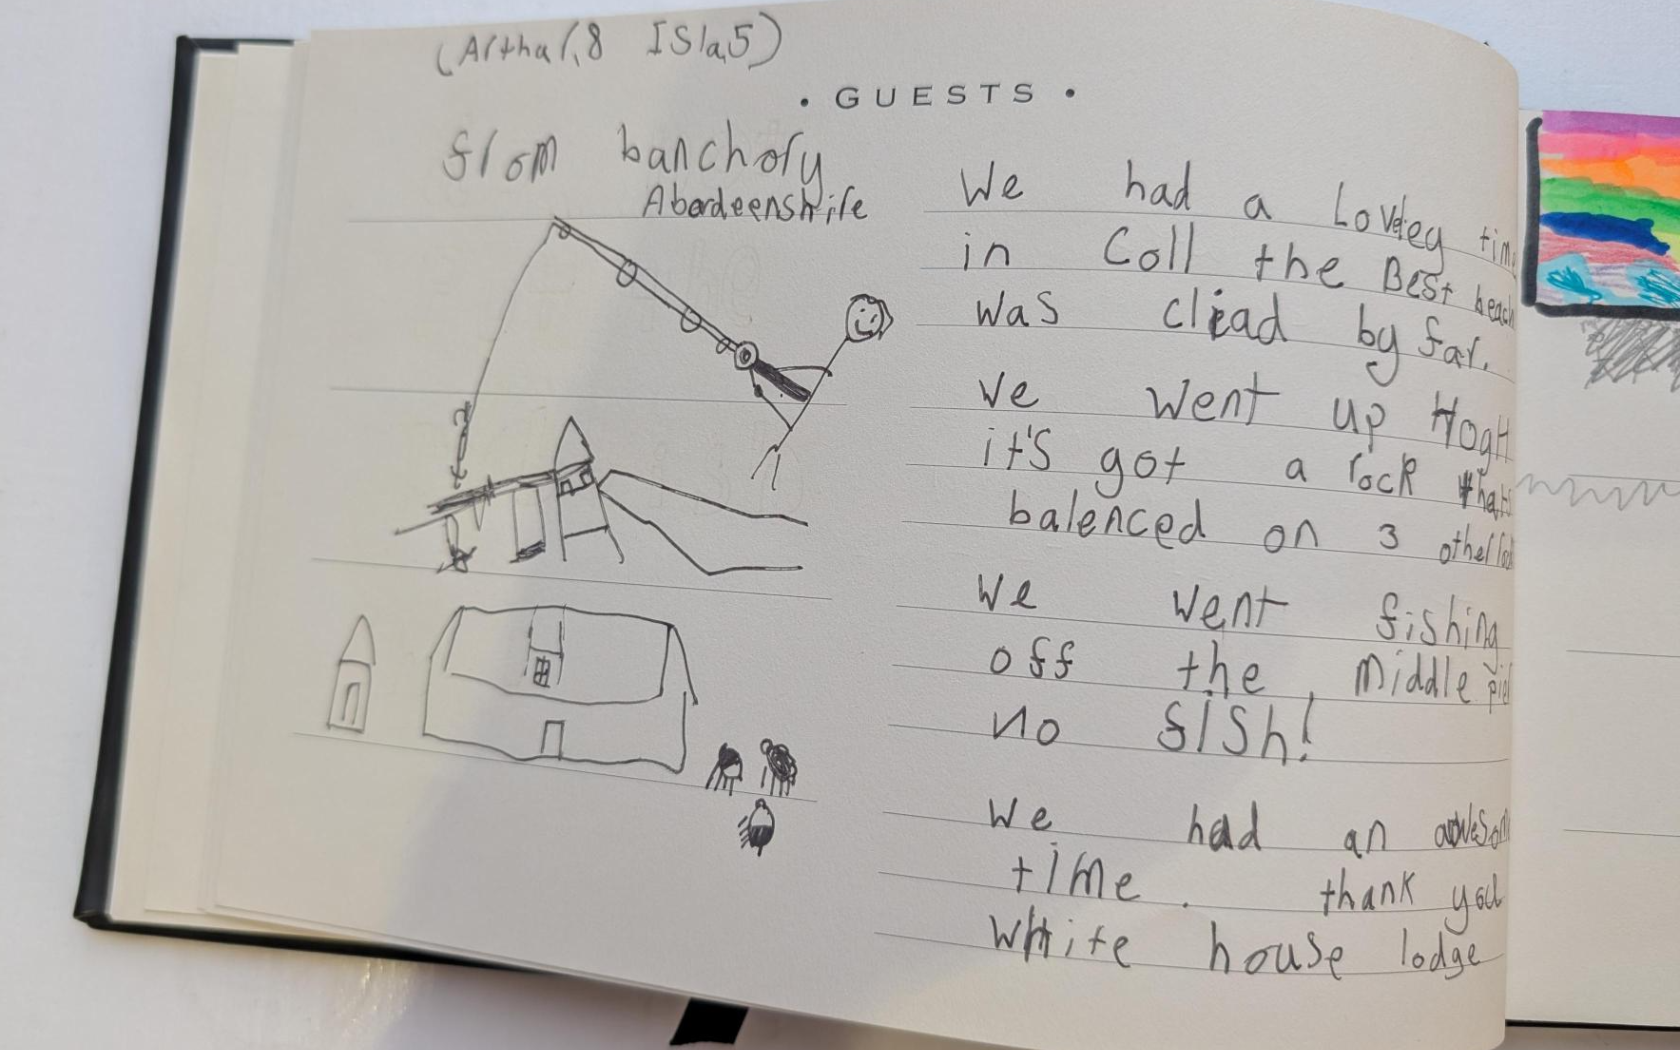 (Arthur,8 Isla,5)
• GUESTS •
from banchory
Aberdeenshire
We had a Lovdey time
in Coll the Best beach
was cliad by far.
We went up Hogh
it's got a rock that's
balenced on 3 other
We went fishing
off the middle pier
no fish!
We had an awesome
time. thank you
White house lodge